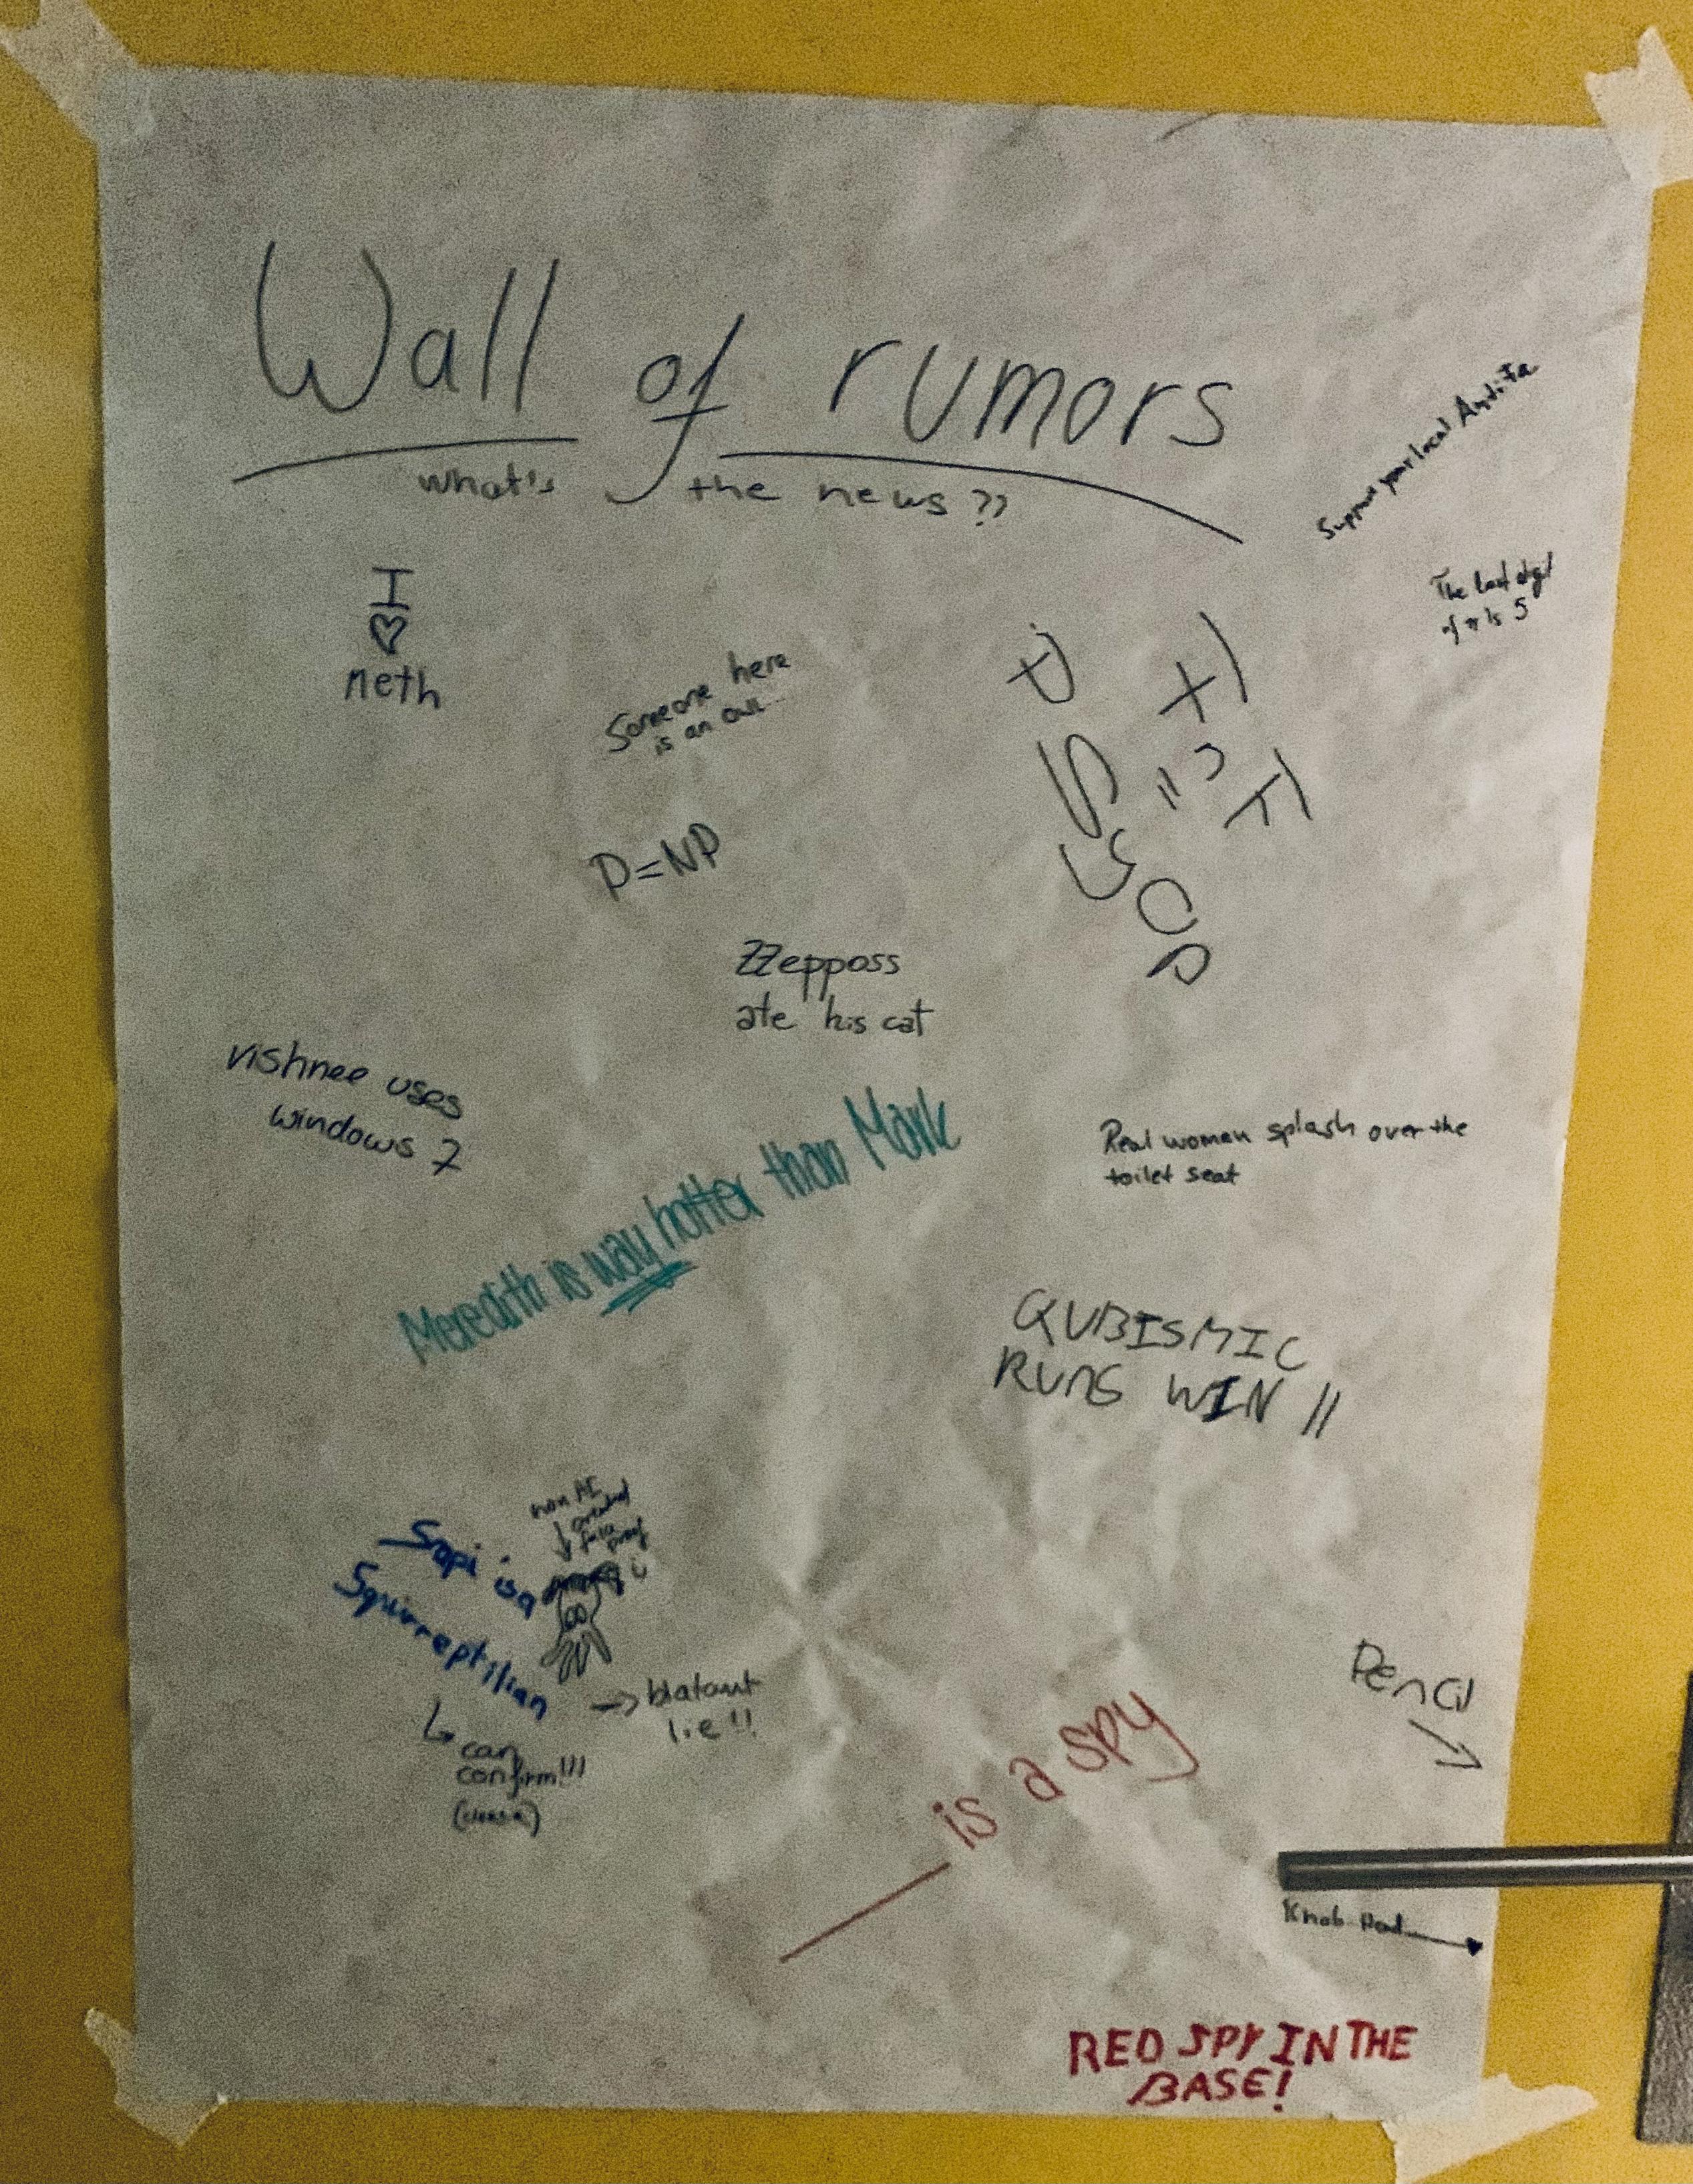 Wall of rumors
what's the news ??
Support your local Antifa
I
♡
meth
The last digit
of π is 5
Someone here
is an owl...
P=NP
ZZepposs
ate his cat
vishnee uses
windows 7
Real women splash over the
toilet seat
Meredith is way hotter than Mark
QUBISMIC
RUNS WIN !!
non AI
created
proof
Sopi is a
Squirreptilian
→ blatant
lie !!
↳ can
confirm!!!
Pencil
is a spy
Knob
RED SPY IN THE
BASE!